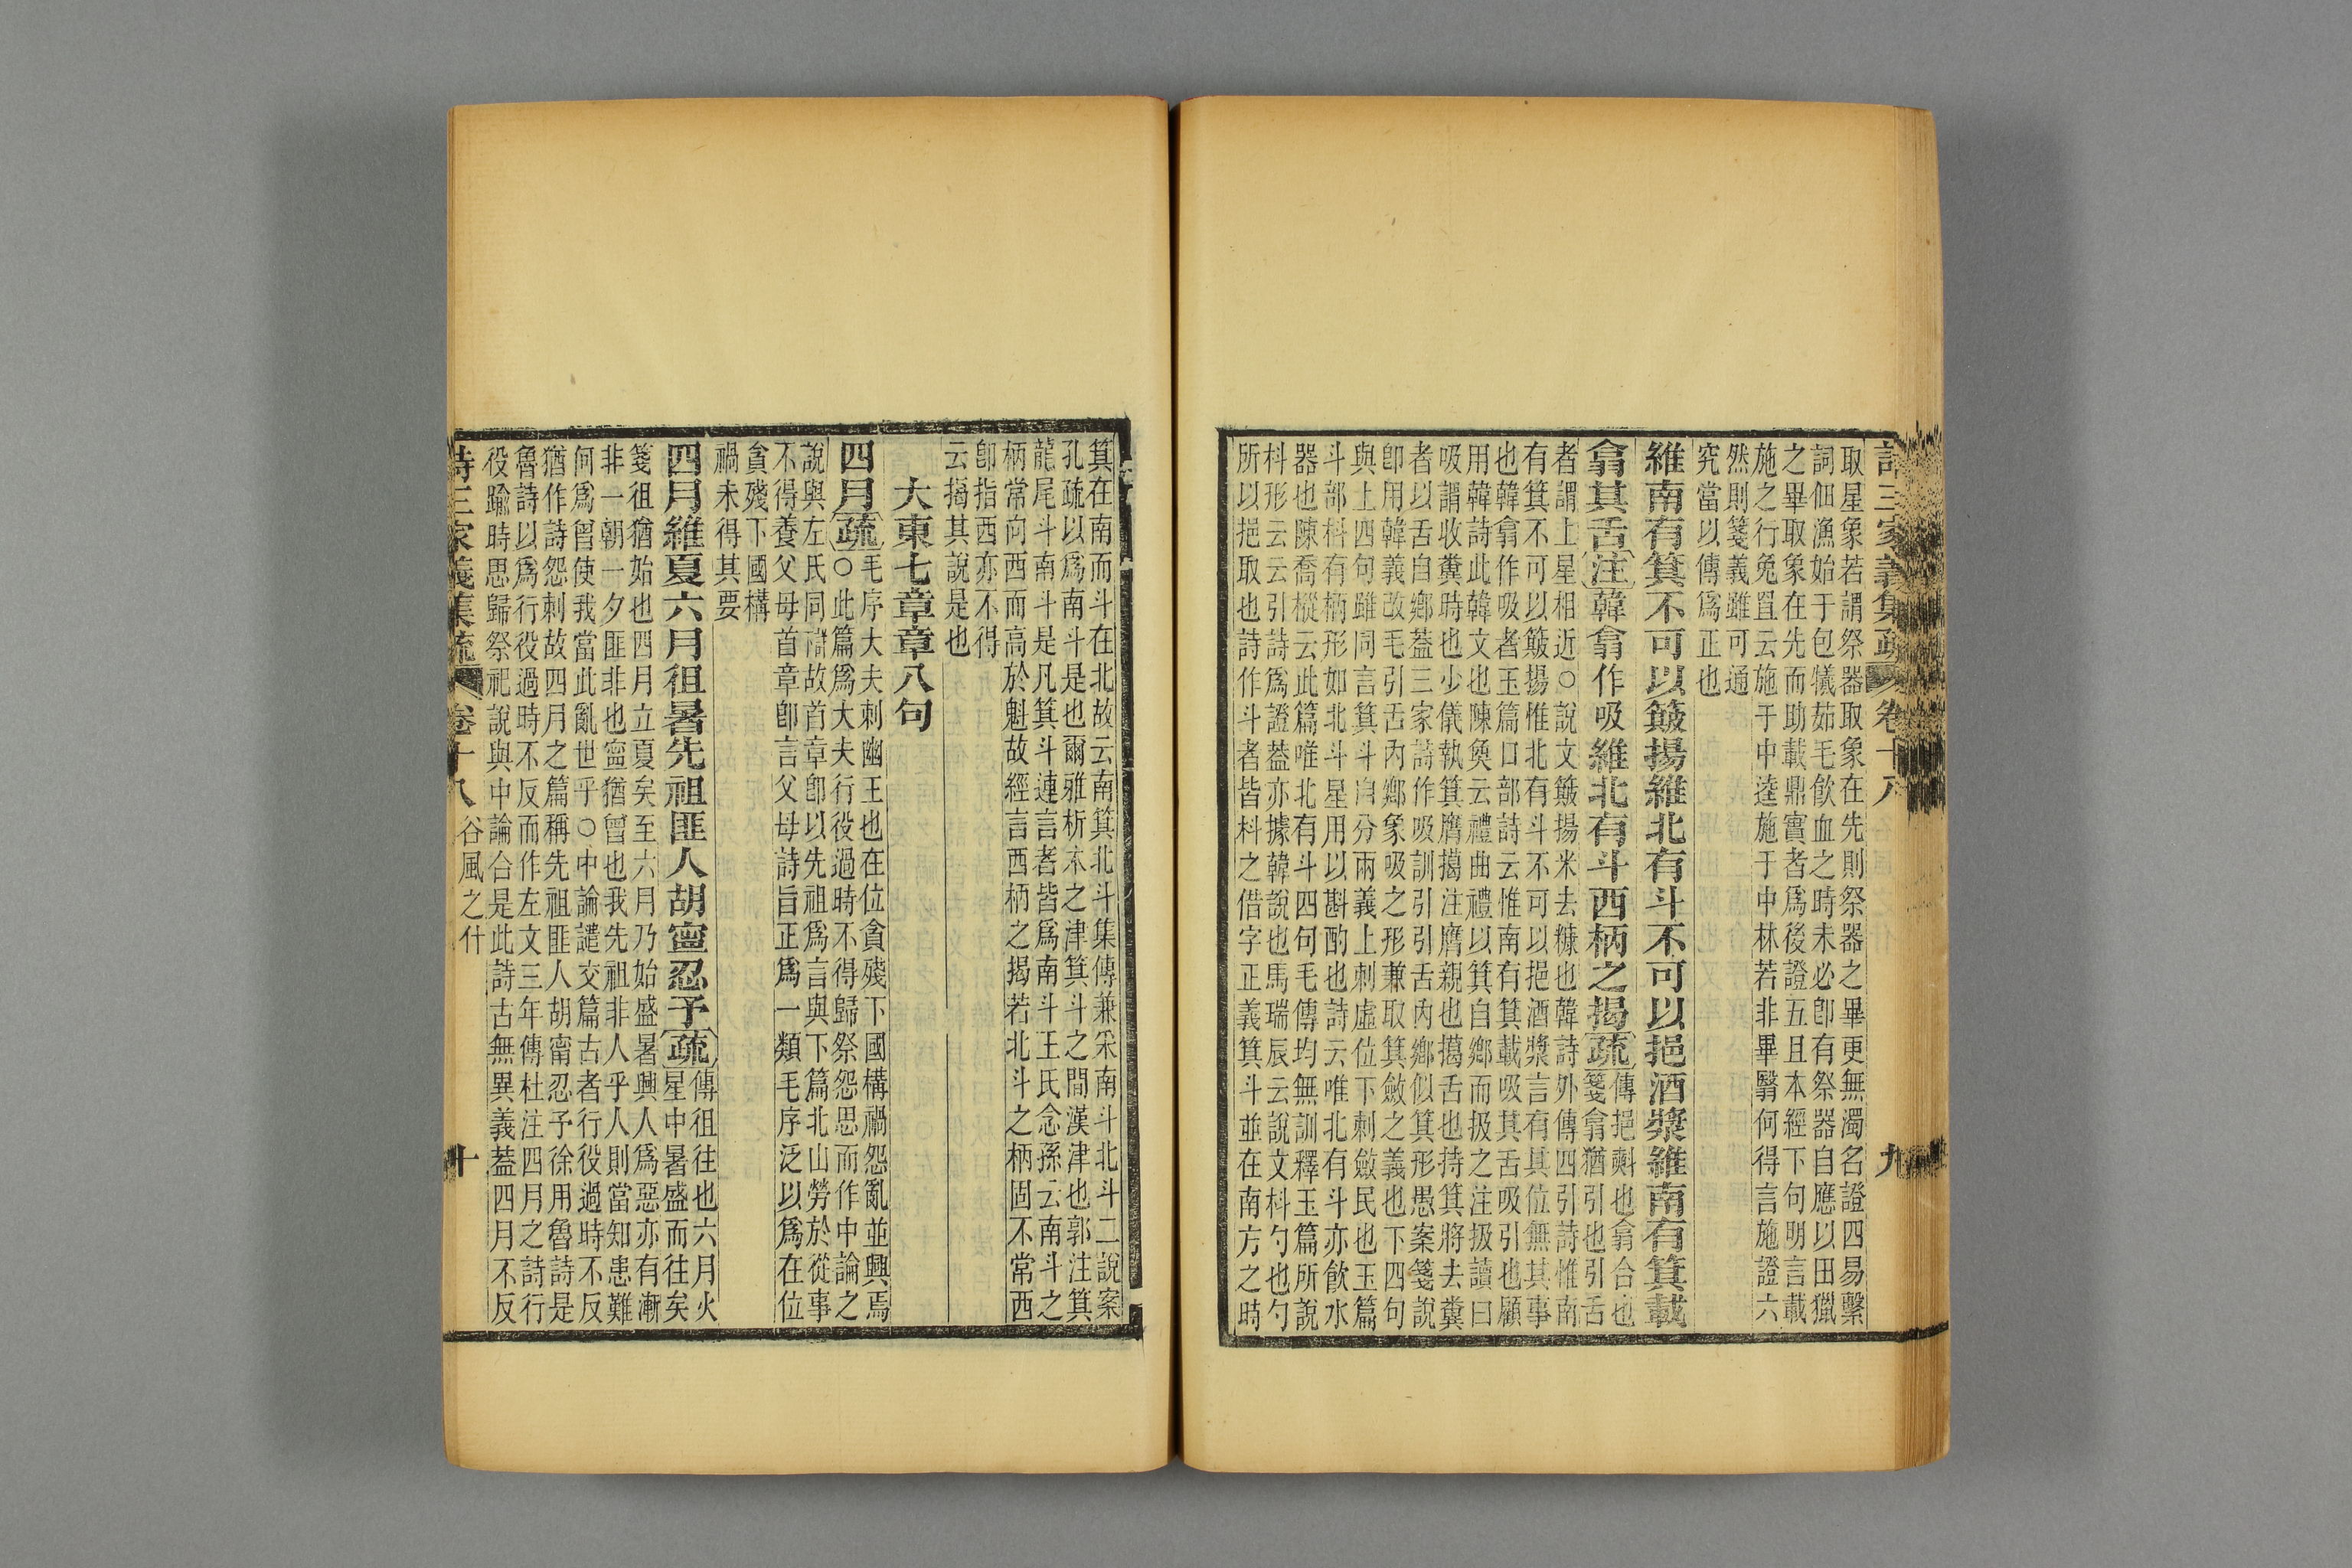 詩三家義集疏 卷十八 九
取星象若謂祭器取象在先則祭器之畢更無濁名證四易繫
詞佃漁始于包犧茹毛飮血之時未必卽有祭器自應以田獵
之畢取象在先而助載鼎實者爲後證五且本經下句明言載
施之行兔罝云施于中逵施于中林若非畢翳何得言施證六
然則箋義雖可通
究當以傳爲正也
維南有箕不可以簸揚維北有斗不可以挹酒漿維南有箕載
翕其舌注韓翕作吸維北有斗西柄之揭疏
傳挹㪺也翕合也
箋翕猶引也引舌
者謂上星相近○說文簸揚米去糠也韓詩外傳四引詩惟南
有箕不可以簸揚惟北有斗不可以挹酒漿言有其位無其事
也韓翕作吸者玉篇口部詩云惟南有箕載吸其舌吸引也顧
用韓詩此韓文也陳奐云禮曲禮以箕自鄉而扱之注扱讀曰
吸謂收糞時也少儀執箕膺擖注膺親也擖舌也持箕將去糞
者以舌自鄉蓋三家詩作吸訓引引舌內鄉似箕形愚案箋說
卽用韓義改毛引舌內鄉象吸之形兼取箕斂之義也下四句
與上四句雖同言箕斗自分兩義上刺虛位下刺斂民也玉篇
斗部枓有柄形如北斗星用以斟酌也詩云唯北有斗亦飮水
器也陳喬樅云此篇唯北有斗四句毛傳均無訓釋玉篇所說
枓形云云引詩爲證蓋亦據韓說也馬瑞辰云說文枓勺也勺
所以挹取也詩作斗者皆枓之借字正義箕斗並在南方之時
箕在南而斗在北故云南箕北斗集傳兼采南斗北斗二說案
孔疏以爲南斗是也爾雅析木之津箕斗之間漢津也郭注箕
龍尾斗南斗是凡箕斗連言者皆爲南斗王氏念孫云南斗之
柄常向西而高於魁故經言西柄之揭若北斗之柄固不常西
卽指西亦不得
云揭其說是也
大東七章章八句
四月疏
毛序大夫刺幽王也在位貪殘下國構禍怨亂並興焉
○此篇爲大夫行役過時不得歸祭怨思而作中論之
說與左氏同𧬆故首章卽以先祖爲言與下篇北山勞於從事
不得養父母首章卽言父母詩旨正爲一類毛序泛以爲在位
貪殘下國構
禍未得其要
四月維夏六月徂暑先祖匪人胡寧忍予疏
傳徂往也六月火
星中暑盛而往矣
箋徂猶始也四月立夏矣至六月乃始盛暑興人爲惡亦有漸
非一朝一夕匪非也寧猶曾也我先祖非人乎人則當知患難
何爲曾使我當此亂世乎○中論譴交篇古者行役過時不反
猶作詩怨刺故四月之篇稱先祖匪人胡甯忍予徐用魯詩是
魯詩以爲行役過時不反而作左文三年傳杜注四月之詩行
役踰時思歸祭祀說與中論合是此詩古無異義蓋四月不反
詩三家義集疏 卷十八 谷風之什 十